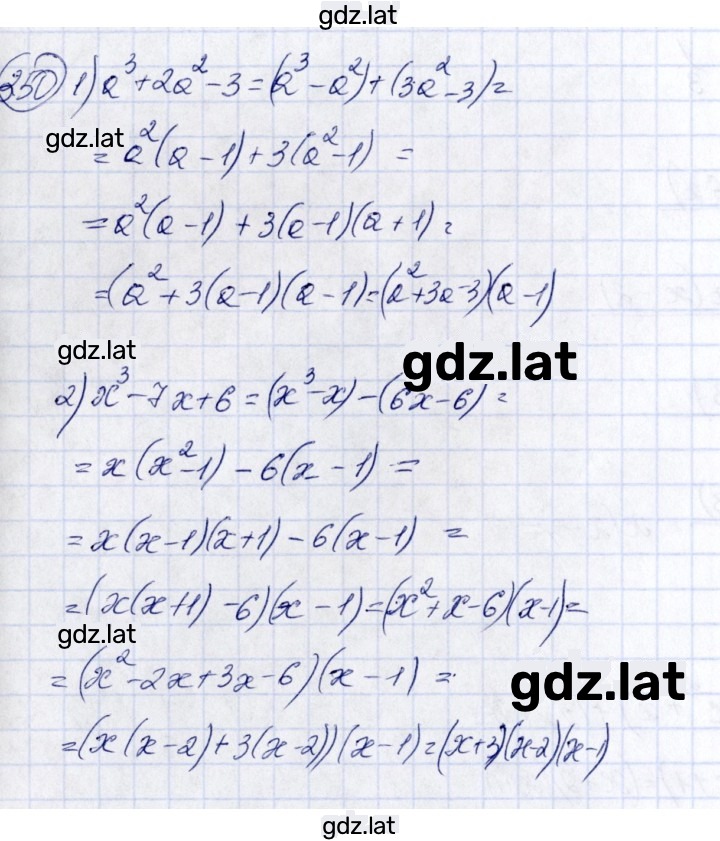 gdz.lat
250 1) a³ + 2a² - 3 = (a³ - a²) + (3a² - 3) =
gdz.lat
= a²(a - 1) + 3(a² - 1) =
= a²(a - 1) + 3(a - 1)(a + 1) =
= (a² + 3(a - 1)(a - 1) = (a² + 3a - 3)(a - 1)
gdz.lat
gdz.lat
2) x³ - 7x + 6 = (x³ - x) - (6x - 6) =
= x(x² - 1) - 6(x - 1) =
= x(x - 1)(x + 1) - 6(x - 1) =
= (x(x + 1) - 6)(x - 1) = (x² + x - 6)(x - 1) =
gdz.lat
= (x² - 2x + 3x - 6)(x - 1) =
gdz.lat
= (x(x - 2) + 3(x - 2))(x - 1) = (x + 3)(x - 2)(x - 1)
gdz.lat